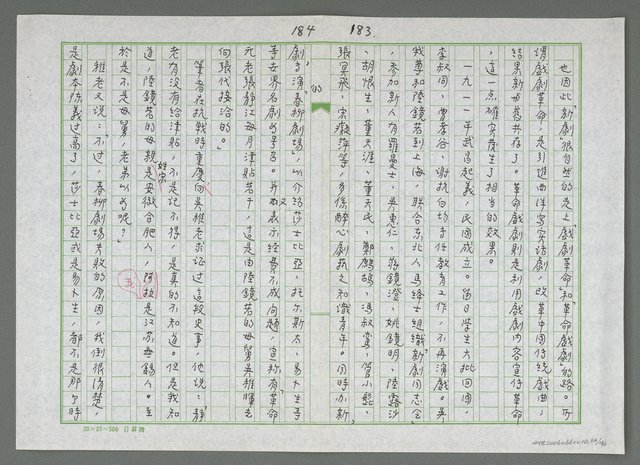 184
183
也因此,「新劇很自然的走上「戲劇革命」和「革命戲劇」的路。所
謂戲劇革命,是引進西洋寫實話劇,改革中國傳統戲曲,
結果新與舊並存了。革命戲劇則是利用戲劇內容宣傳革命
,這一點確實產生了相當的效果。
一九一一年武昌起義,民國成立。留日學生大批回國,
李叔同、曾孝谷、謝抗白均專任教育工作,不再演戲。吳
我尊和陸鏡若到上海,聯合東北人馬絳士組織新劇同志會
,參加新人有羅曼士、吳惠仁、蔣鏡澄、姚鏡明、陸露沙
、胡恨生、董天涯、董天民、鄭鷓鴣、馮叔鸞、管小髭、
張冥飛、宋癡萍等,多係醉心劇藝之知識青年。同時亦新
劇,「演春柳劇場」,以介紹莎士比亞、托尔斯太、易卜生等
等世界名劇為號召。並又表示經費不成問題,宣称有「革命
元老張靜江每月津貼若干,這是由陸鏡若的母舅吳稚暉老
向張代接洽的。」
筆者在抗戰時重慶向吳稚老求証过這段史事,他說:「靜
老有沒有給津貼,不是記不得,是真的不知道。但是我知
道,陸鏡若的母親是安徽合肥人,阿拉是江苏無錫人。至
姓宗
於是不是母舅,老弟以為呢?」
五
稚老又說:「不过,春柳劇場失敗的原因,我倒很清楚,
是劇本陈義过高了,莎士比亞或是易卜生,都不是那个時
20×25=500 日昇牌